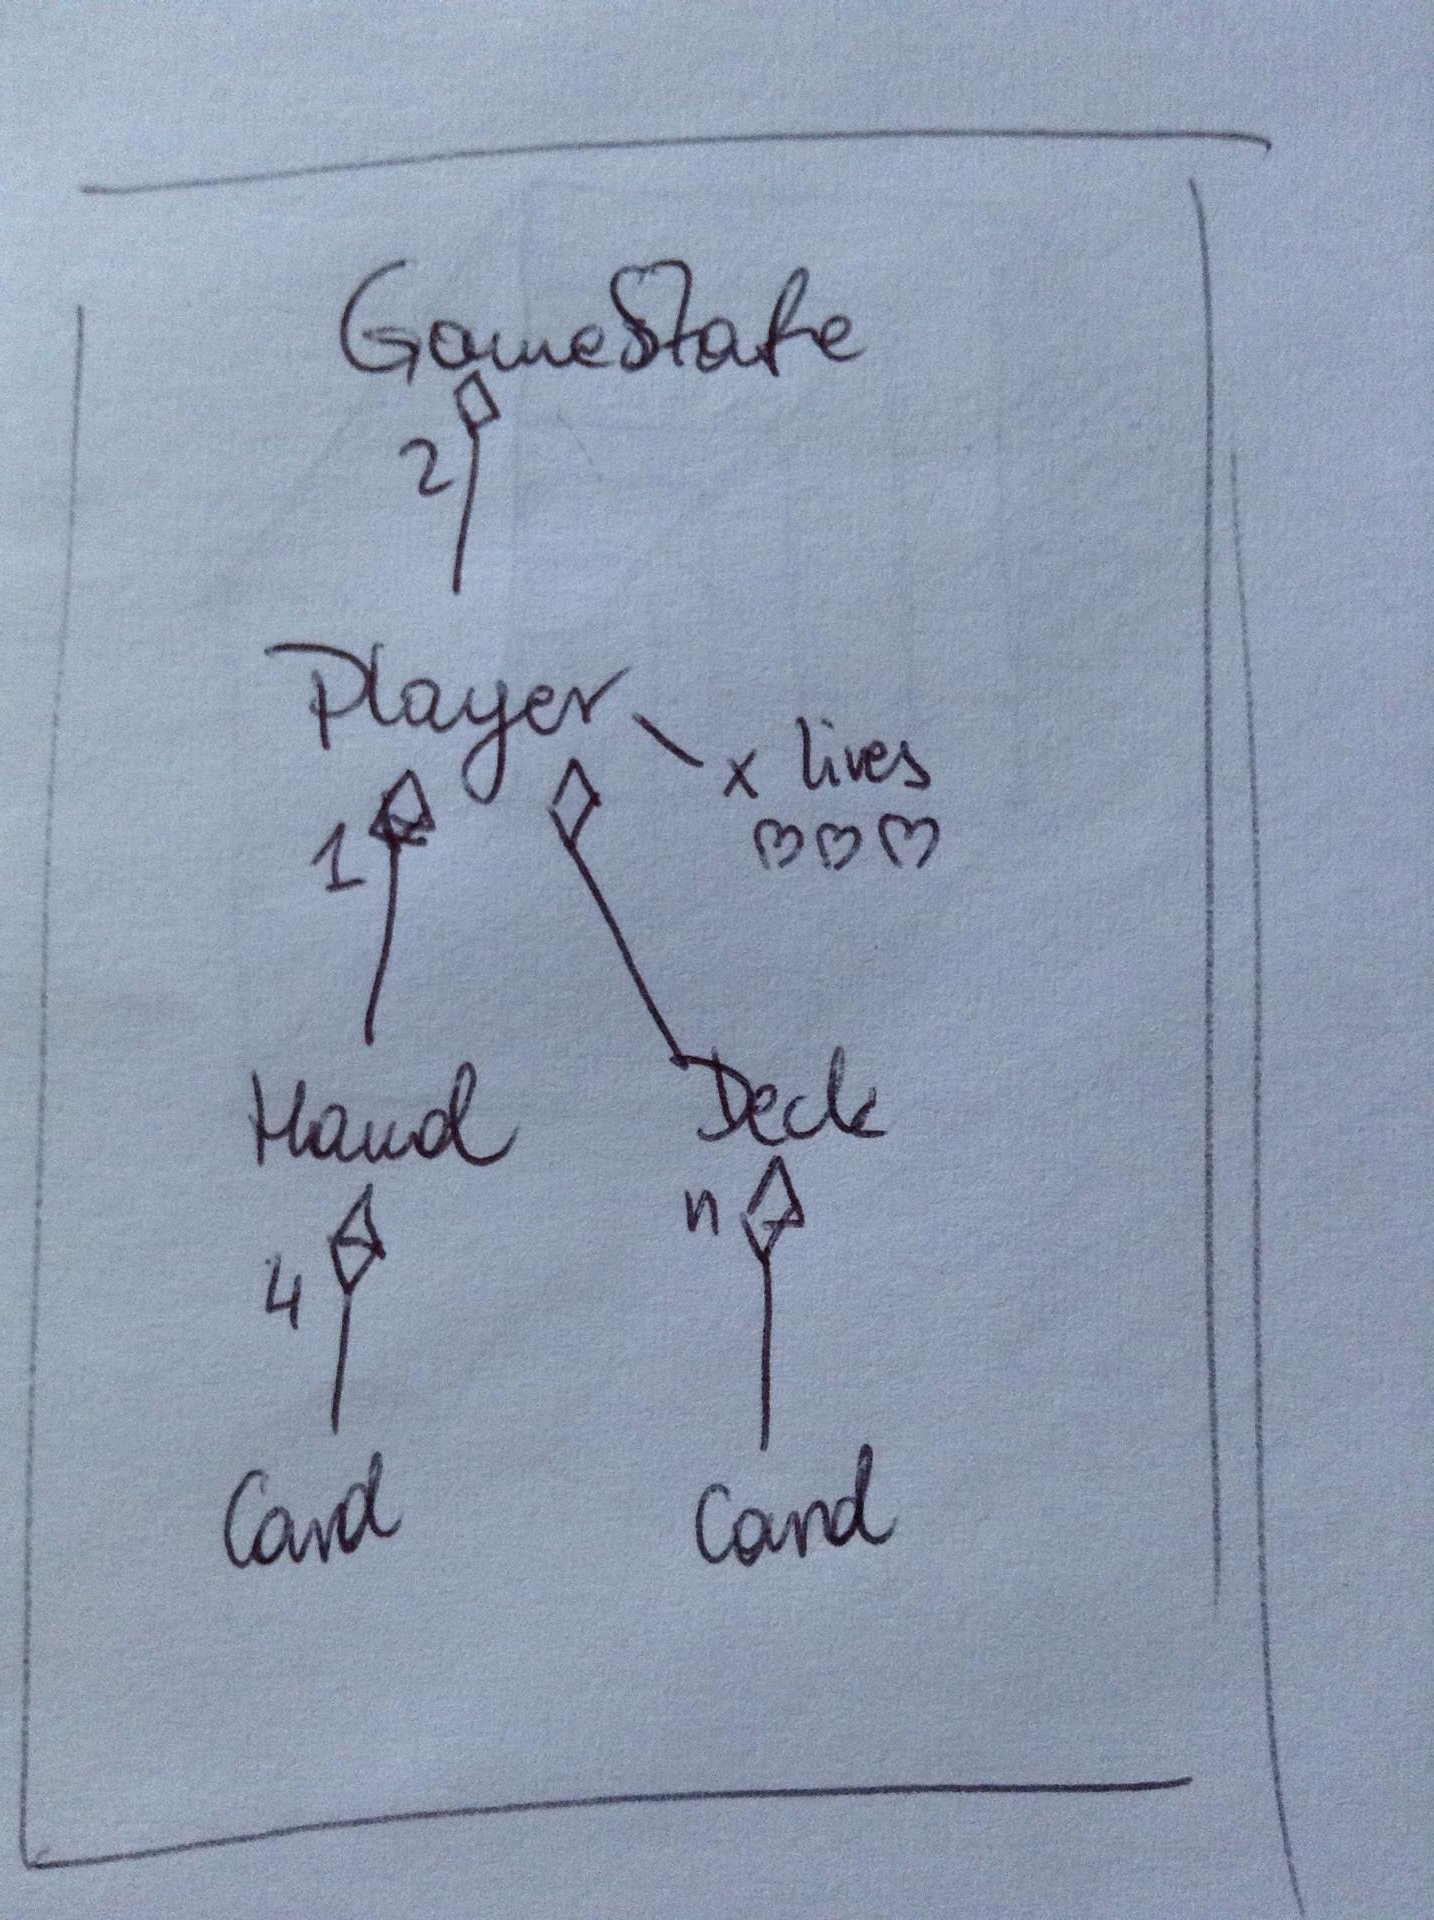 GameState
2
Player
x lives
1
Hand
Deck
4
n
Card
Card